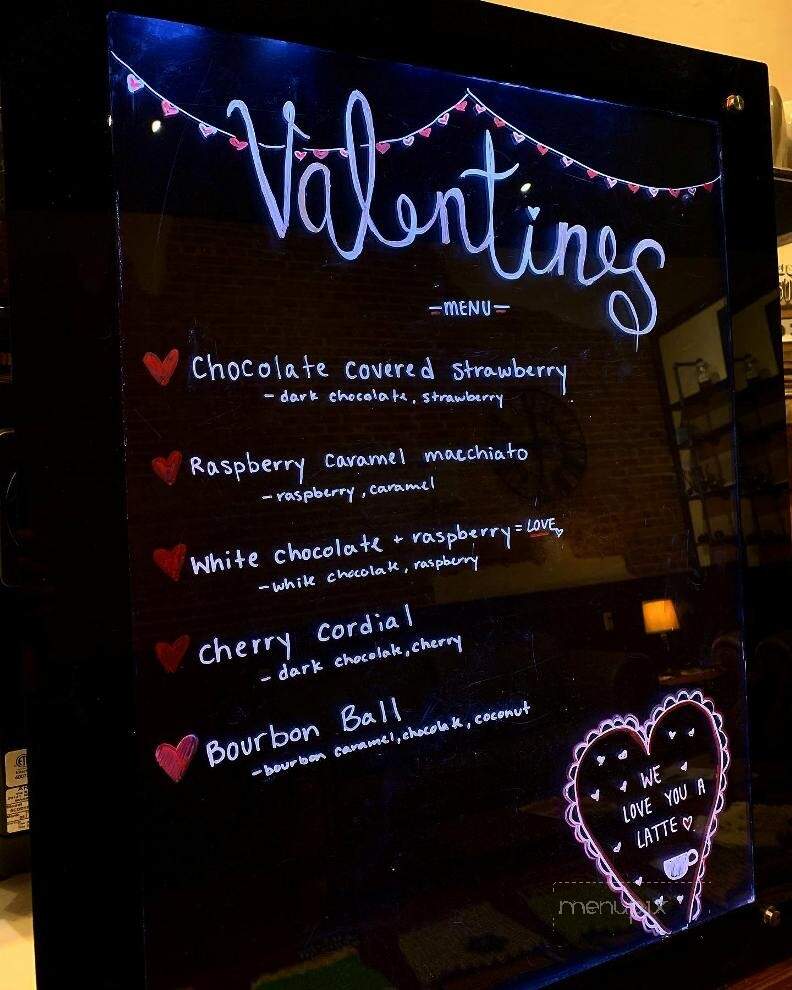 Valentines
-MENU-
Chocolate covered strawberry
- dark chocolate, strawberry
Raspberry caramel macchiato
- raspberry, caramel
White chocolate + raspberry = LOVE
- white chocolate, raspberry
Cherry Cordial
- dark chocolate, cherry
Bourbon Ball
- bourbon caramel, chocolate, coconut
WE
LOVE YOU A
LATTE
menupix